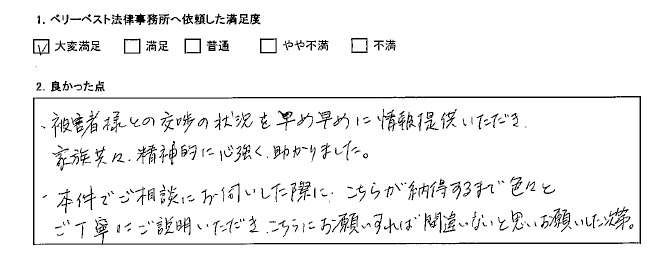 1. ベリーベスト法律事務所へ依頼した満足度
☑ 大変満足 □ 満足 □ 普通 □ やや不満 □ 不満
2. 良かった点
・被害者様との交渉の状況を早め早めに情報提供いただき、
家族共々、精神的に心強く、助かりました。
・本件でご相談にお伺いした際に、こちらが納得するまで色々と
ご丁寧にご説明いただき、こちらにお願いすれば間違いないと思いお願いした次第。